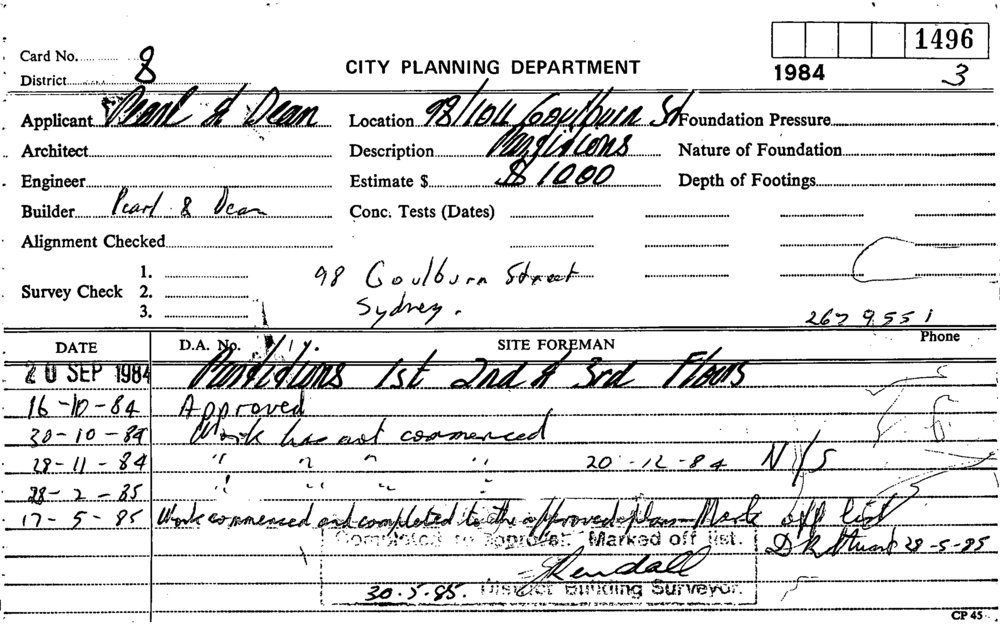 1496
Card No. 8
CITY PLANNING DEPARTMENT
1984 3
District
Applicant Pearl & Dean Location 98/104 Goulburn St Foundation Pressure
Architect Description Partitions Nature of Foundation
Engineer Estimate $ $1000 Depth of Footings
Builder Pearl & Dean Conc. Tests (Dates)
Alignment Checked
1.
98 Goulburn Street
Survey Check 2.
Sydney.
3.
267 9551
DATE D.A. No. SITE FOREMAN Phone
20 SEP 1984 Partitions 1st 2nd & 3rd Floors
16-10-84 Approved
30-10-84 Work has not commenced
28-11-84 " " " " 20-12-84 N/S
28-2-85 " " " "
17-5-85 Work commenced and completed to the approved plans - Mark off list
Completed to approval. Marked off list. 28-5-85
Kendall
30.5.85. District Building Surveyor.
CP 45